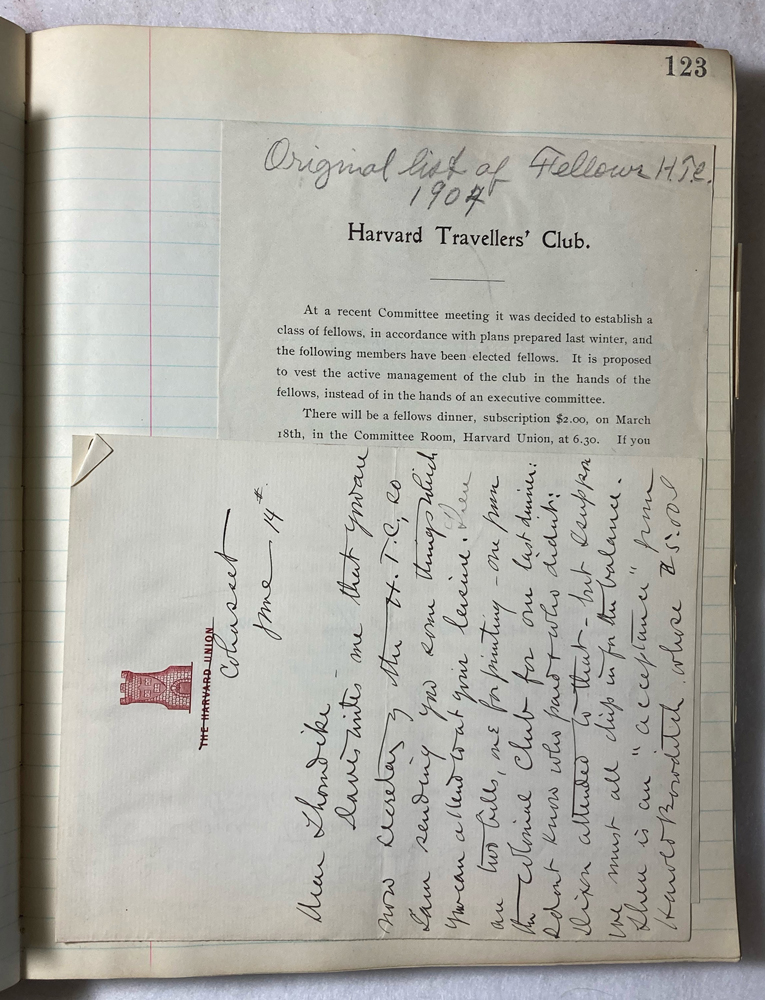 123
Original list of Fellows H.T.C.
1904
Harvard Travellers' Club.
At a recent Committee meeting it was decided to establish a
class of fellows, in accordance with plans prepared last winter, and
the following members have been elected fellows. It is proposed
to vest the active management of the club in the hands of the
fellows, instead of in the hands of an executive committee.
There will be a fellows dinner, subscription $2.00, on March
18th, in the Committee Room, Harvard Union, at 6.30. If you
THE HARVARD UNION
Cohasset
June 14th.
Dear Thorndike -
Davis writes me that you are
now Secretary of the H.T.C., so
I am sending you some things which
you can attend to at your leisure. There
are two bills, one for printing - one from
the Colonial Club for our last dinner:
I don't know who paid & who didn't:
Dixon attended to that - but I suppose
we must all chip in for the balance.
There is an "acceptance" from
Harold Bowditch whose $5.00